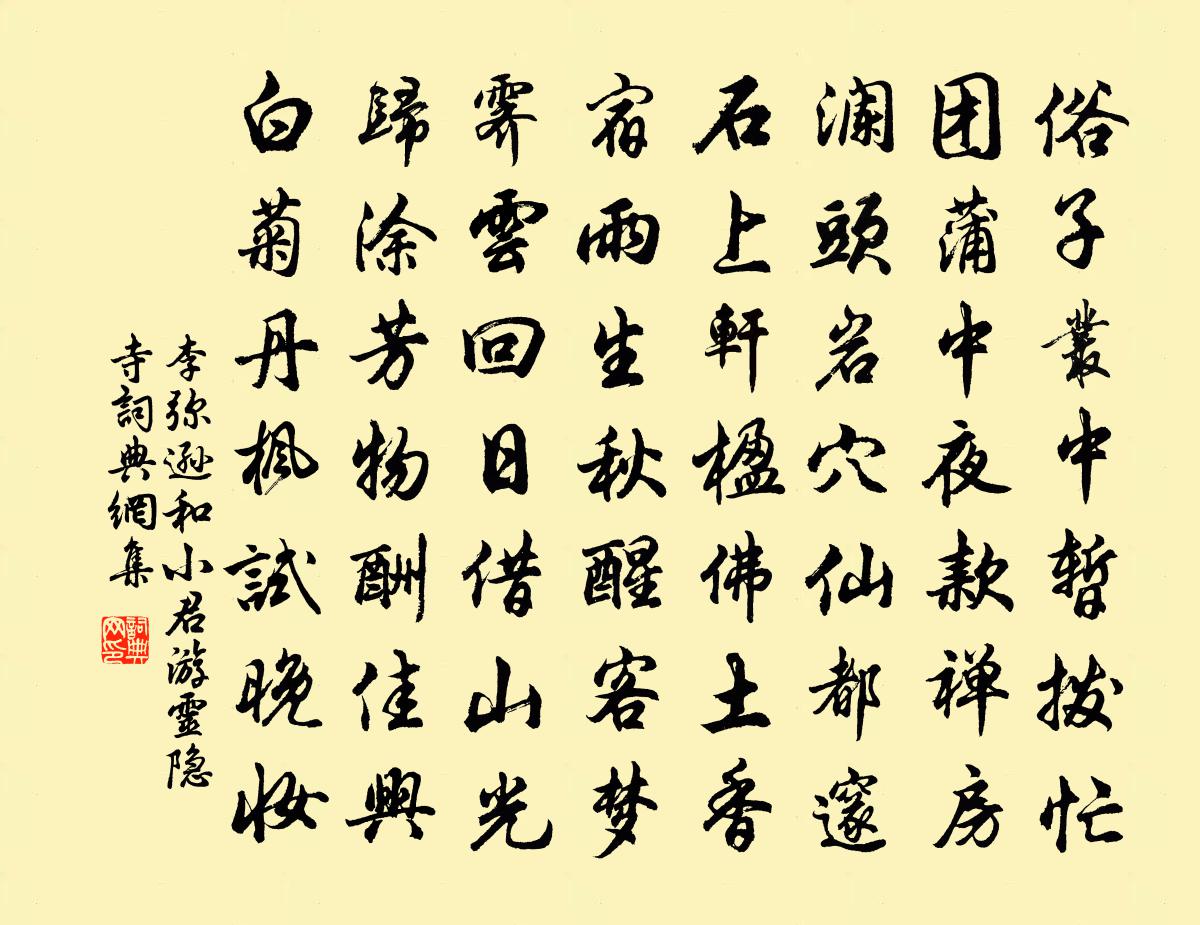 俗子叢中暫拨忙
团蒲中夜款禅房
澜頭岩穴仙都邃
石上軒楹佛土香
宿雨生秋醒客梦
霽雲回日借山光
歸涂芳物酬佳興
白菊丹楓試晚妆
李弥遜和小君游靈隐
寺詞典網集
詞典网印